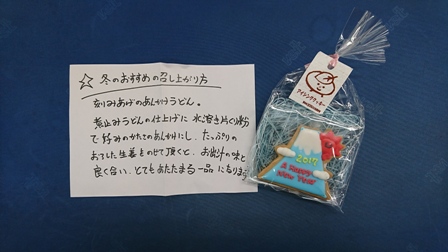 ☆ 冬のおすすめの召し上がり方
刻みあげのあんかけうどん。
煮込みうどんの仕上げに水溶き片くり粉
で好みのかたさのあんかけにし、たっぷりの
おろした生姜をのせて頂くと、お出汁の味と
良く合い、とてもあたたまる一品になります
アイシングクッキー
2017
A HAPPY
New Year